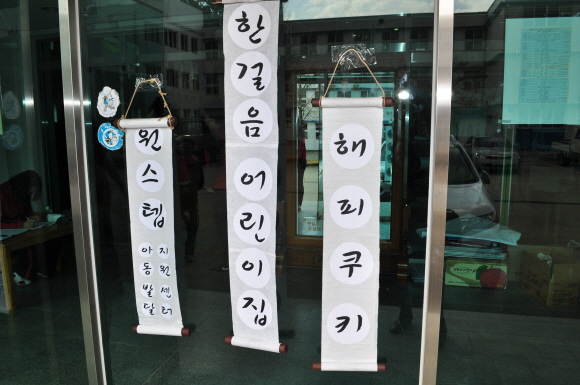 원스텝
아동발달
지원센터
한걸음 어린이집
해피쿠키